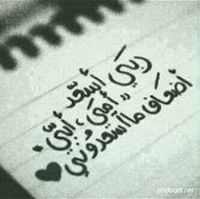 ربي أسعد
" أمي ، أبي "
أضعاف ما أسعدوني
photoget.net